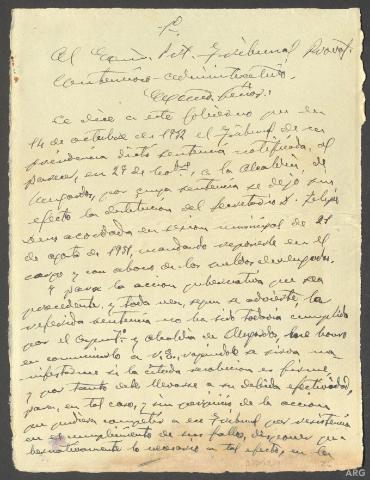 Al Excmo. Tribunal Proval.
Contencioso-administrativo.
Excmo. Señor:
Se dice a este Gobierno que en
14 de octubre de 1932 el Tribunal de su
presidencia dictó sentencia notificada, al
parecer, en 29 de Nobre, a la Alcaldía de
Mugardos, por cuya sentencia se dejó sin
efecto la destitución del Secretario D. Felipe
acordada en sesión municipal de 21
de agosto de 1931, mandando reponerle en el
cargo y con abono de los sueldos devengados.
Y para la acción gubernativa que sea
procedente, y toda vez, según se advierte, la
referida sentencia no ha sido todavía cumplida
por el Ayunto. y alcaldía de Mugardos, honor
en comunicarlo a V.E., rogándole se sirva
informarme si la citada resolución es firme,
y por tanto debe llevarse a su debida efectividad,
para, en tal caso, y sin perjuicio de la acción
que pudiera competir a ese Tribunal por resistencia
en el cumplimiento de sus fallos, disponer
gubernativamente lo necesario a tal efecto, en
ARG